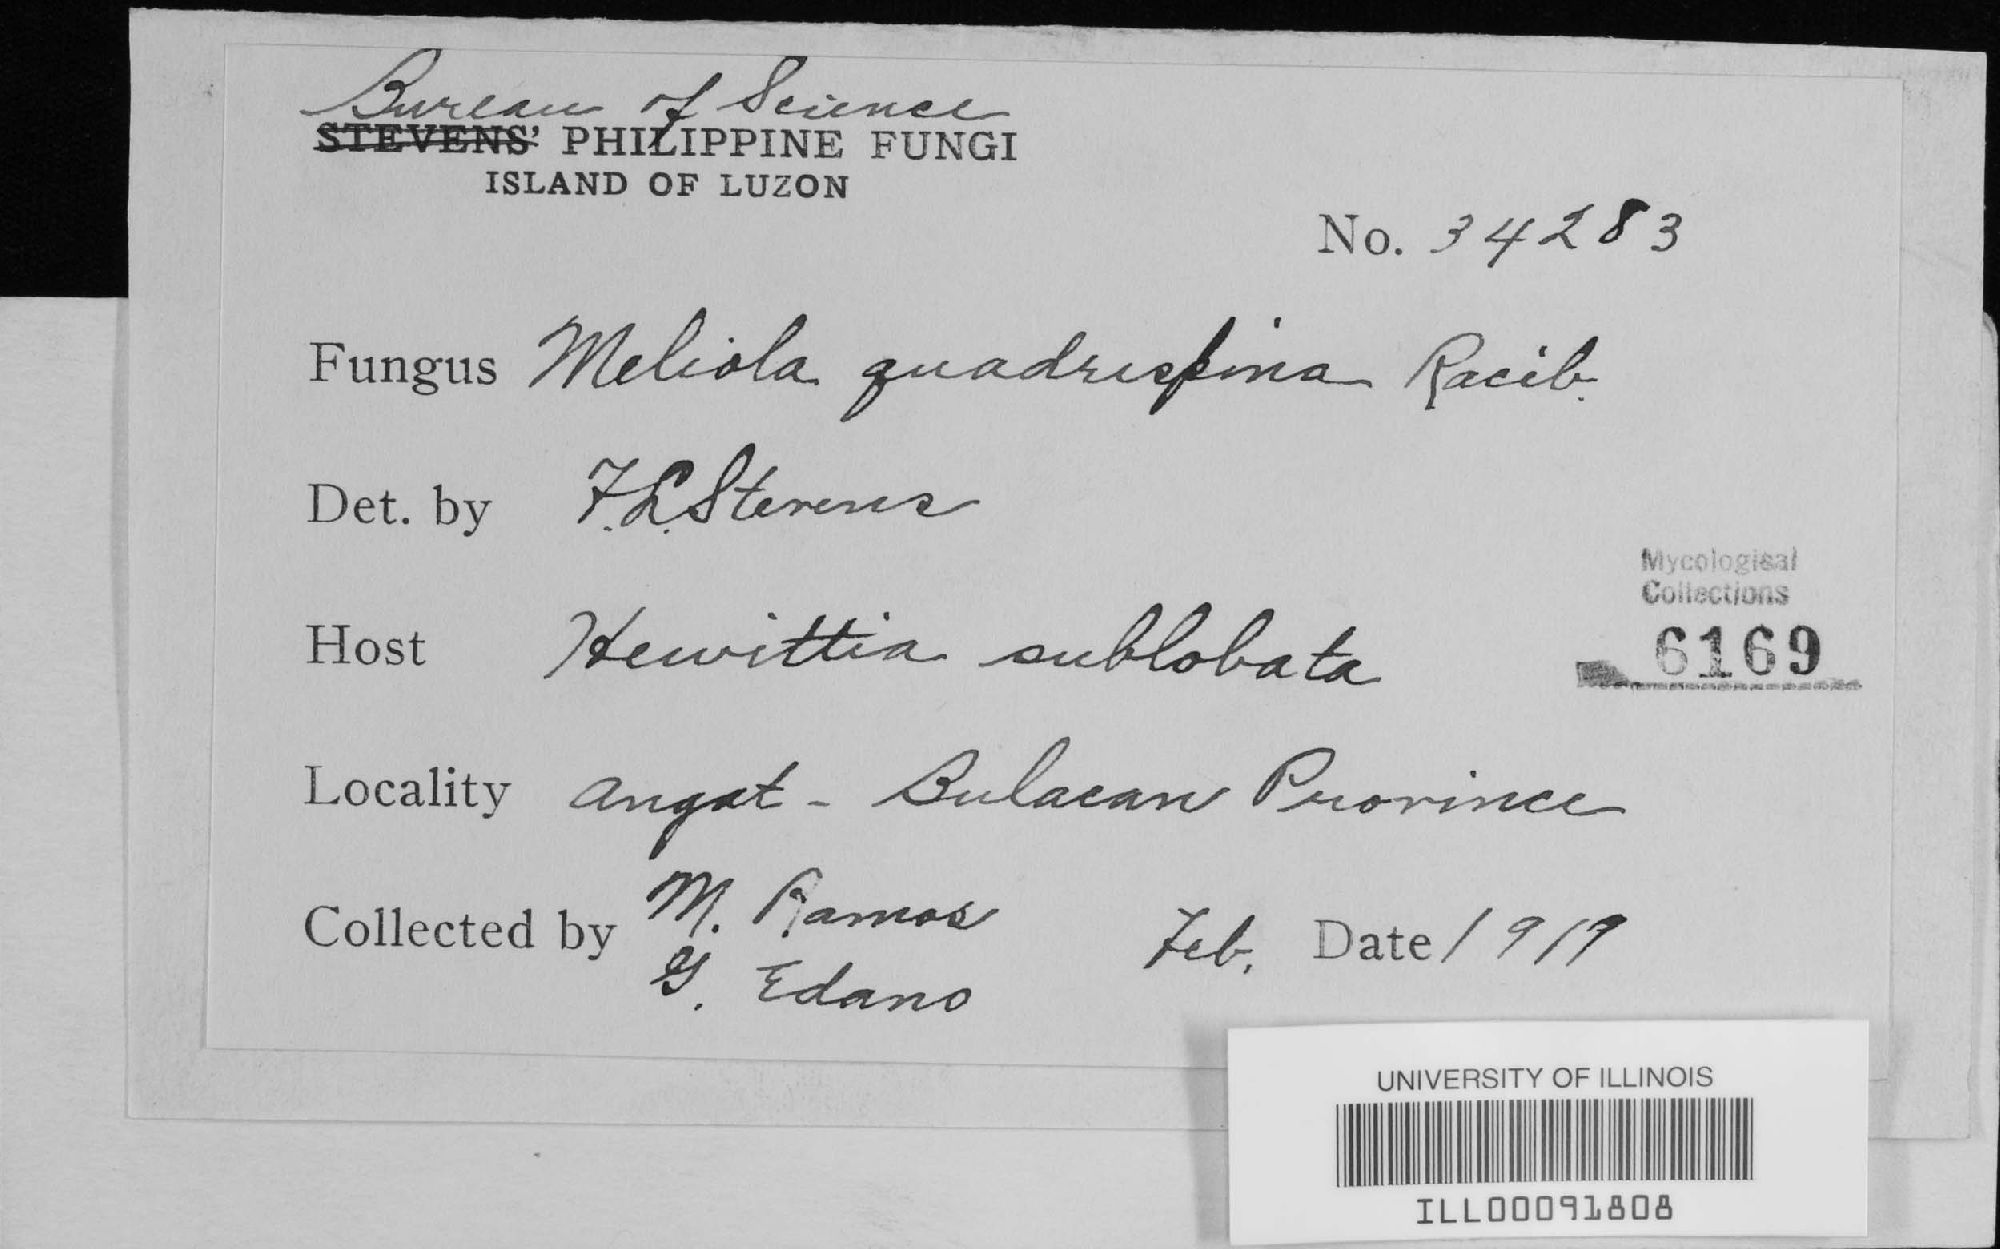 Bureau of Science
STEVENS' PHILIPPINE FUNGI
ISLAND OF LUZON
No. 34283
Fungus Meliola quadrispina Racib.
Det. by F.L. Stevens
Mycological
Collections
6169
Host Hewittia sublobata
Locality Angat - Bulacan Province
Collected by M. Ramos
G. Edano
Feb. Date 1919
UNIVERSITY OF ILLINOIS
ILL00091808